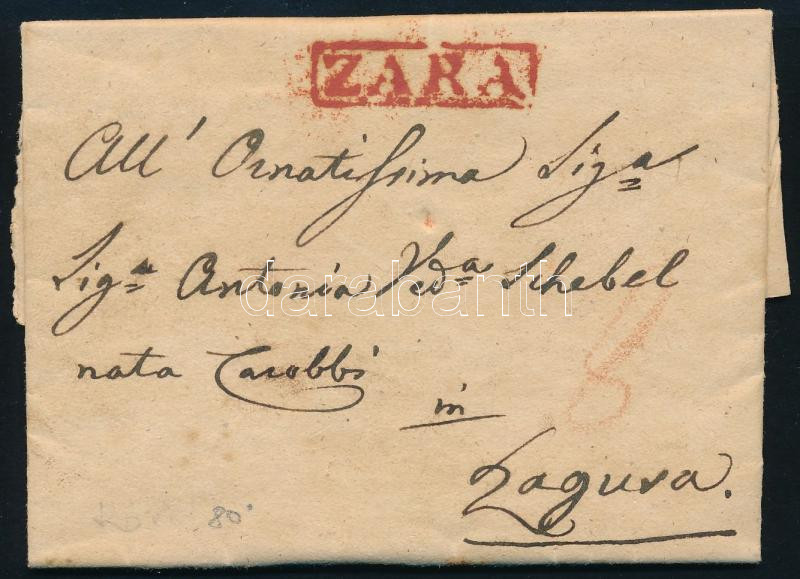 ZARA
All' Ornatissima Sig.a
Sig.a Antonia Ved.a Schebel
nata Carobbi
in
Ragusa.
darabanth
80